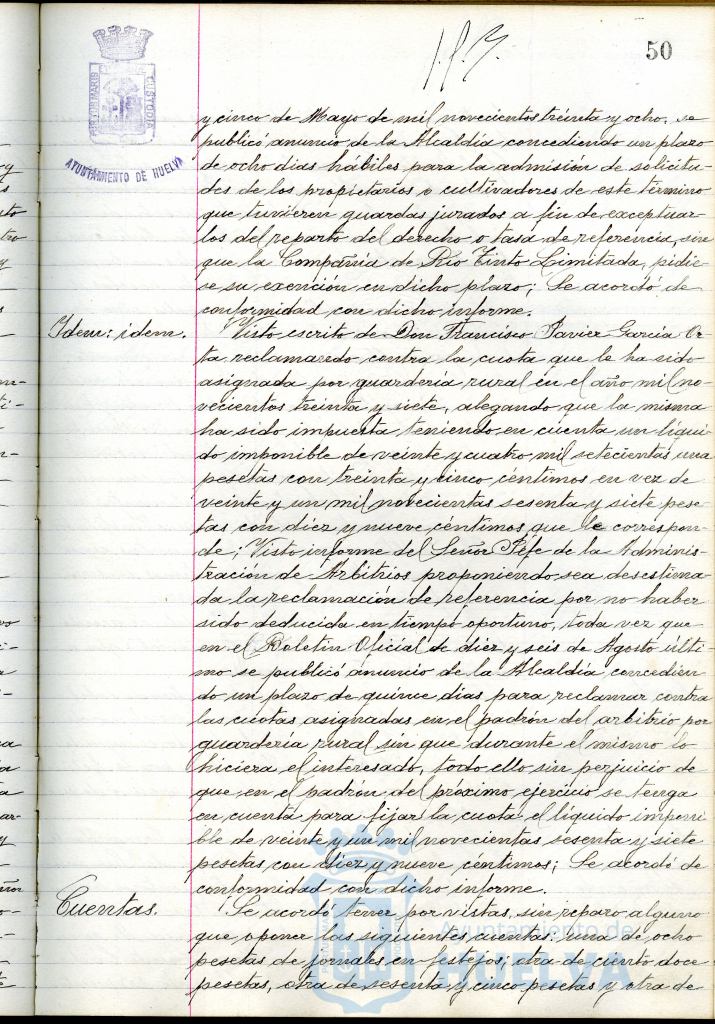 50
PORTUS MARIS
CUSTODIA
AYUNTAMIENTO DE HUELVA
y cinco de Mayo de mil novecientos treinta y ocho, se
publicó anuncio de la Alcaldía concediendo un plazo
de ocho dias hábiles para la admisión de solicitu-
des de los propietarios o cultivadores de este término
que tuvieren guardas jurados a fin de exceptuar-
los del reparto del derecho o tasa de referencia, sin
que la Compañía de Rio Tinto Limitada, pidie-
se su exención en dicho plazo; Se acordó de
conformidad con dicho informe.
Idem: idem.
Visto escrito de Don Francisco Javier García Or-
ta reclamando contra la cuota que le ha sido
asignada por guardería rural en el año mil no-
vecientos treinta y siete, alegando que la misma
ha sido impuesta teniendo en cuenta un líqui-
do imponible de veinte y cuatro mil setecientas una
pesetas con treinta y cinco céntimos en vez de
veinte y un mil novecientas sesenta y siete pese-
tas con diez y nueve céntimos que le correspon-
de; Visto informe del Señor Jefe de la Adminis-
tración de Arbitrios proponiendo sea desestima-
da la reclamación de referencia por no haber
sido deducida en tiempo oportuno, toda vez que
en el Boletín Oficial de diez y seis de Agosto últi-
mo se publicó anuncio de la Alcaldía concedien-
do un plazo de quince dias para reclamar contra
las cuotas asignadas en el padrón del arbitrio por
guardería rural sin que durante el mismo lo
hiciera el interesado, todo ello sin perjuicio de
que en el padrón del próximo ejercicio se tenga
en cuenta para fijar la cuota el líquido imponi-
ble de veinte y un mil novecientas sesenta y siete
pesetas con diez y nueve céntimos; Se acordó de
conformidad con dicho informe.
Cuentas.
Se acordó tener por vistas, sin reparo alguno
que oponer las siguientes cuentas: una de ocho
pesetas de jornales en festejos; otra de ciento doce
pesetas, otra de sesenta y cinco pesetas y otra de
Ayuntamiento de
HUELVA